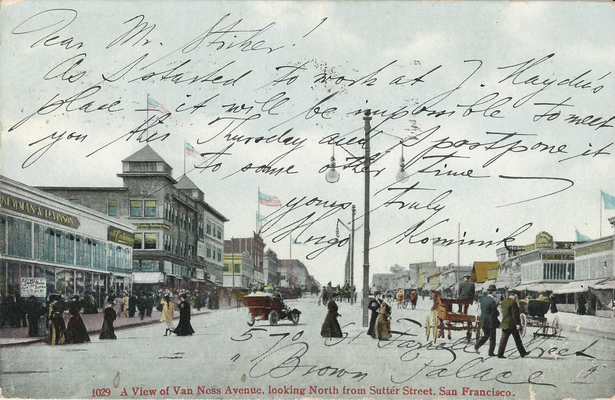 Dear Mr. Sticher!
As I started to work at J. Hayden's
place - it will be impossible to meet
you this Thursday and I postpone it
to some other time -
yours truly
Hugo Mominik
NEWMAN & LEVINSON
576 O'Farrell Street
"Brown Palace"
1029 A View of Van Ness Avenue, looking North from Sutter Street, San Francisco.